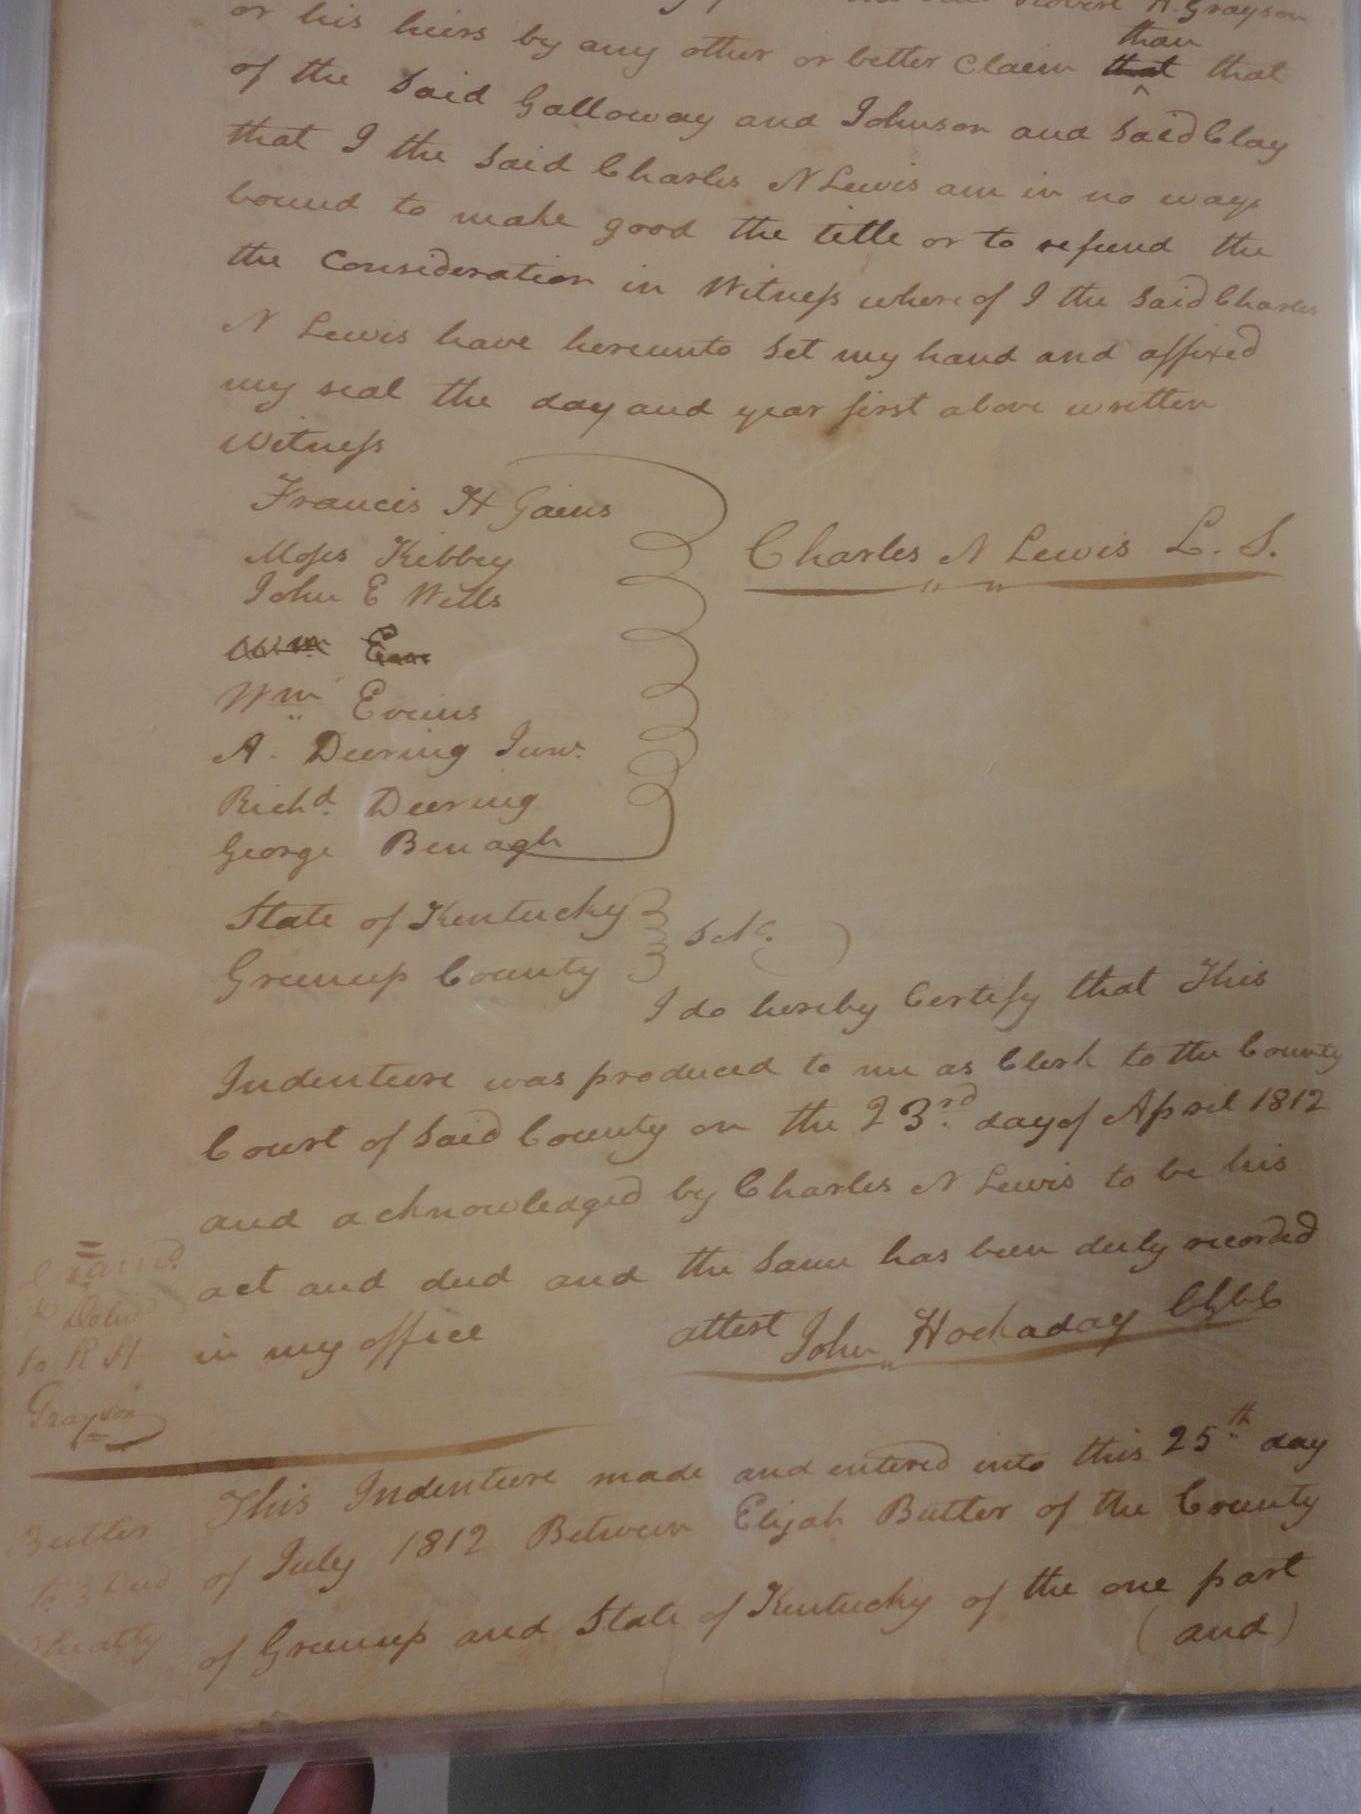 Robert H. Grayson
or his heirs by any other or better Claim that than that
of the Said Galloway and Johnson and Said Clay
that I the Said Charles N Lewis am in no ways
bound to make good the title or to refund the
the Consideration in Witness where of I the Said Charles
N Lewis have hereunto Set my hand and affixed
my seal the day and year first above written
Witness
Francis H Gains
Moses Kibbey
John E Wills
Wm
Wm Evins
A. Deering Junr.
Richd. Deering
George Benagh
Charles N Lewis L. S.
State of Kentucky
Greenup County
I do hereby Certify that This
Indenture was produced to me as Clerk to the County
Court of Said County on the 23rd. day of April 1812
and acknowledged by Charles N Lewis to be his
act and deed and the Same has been duly recorded
in my office
attest John Hockaday
to R H
Grayson
This Indenture made and entered into this 25th day
of July 1812 Between Elijah Butter of the County
of Greenup and State of Kentucky of the one part
(and)
Butter
to Deed